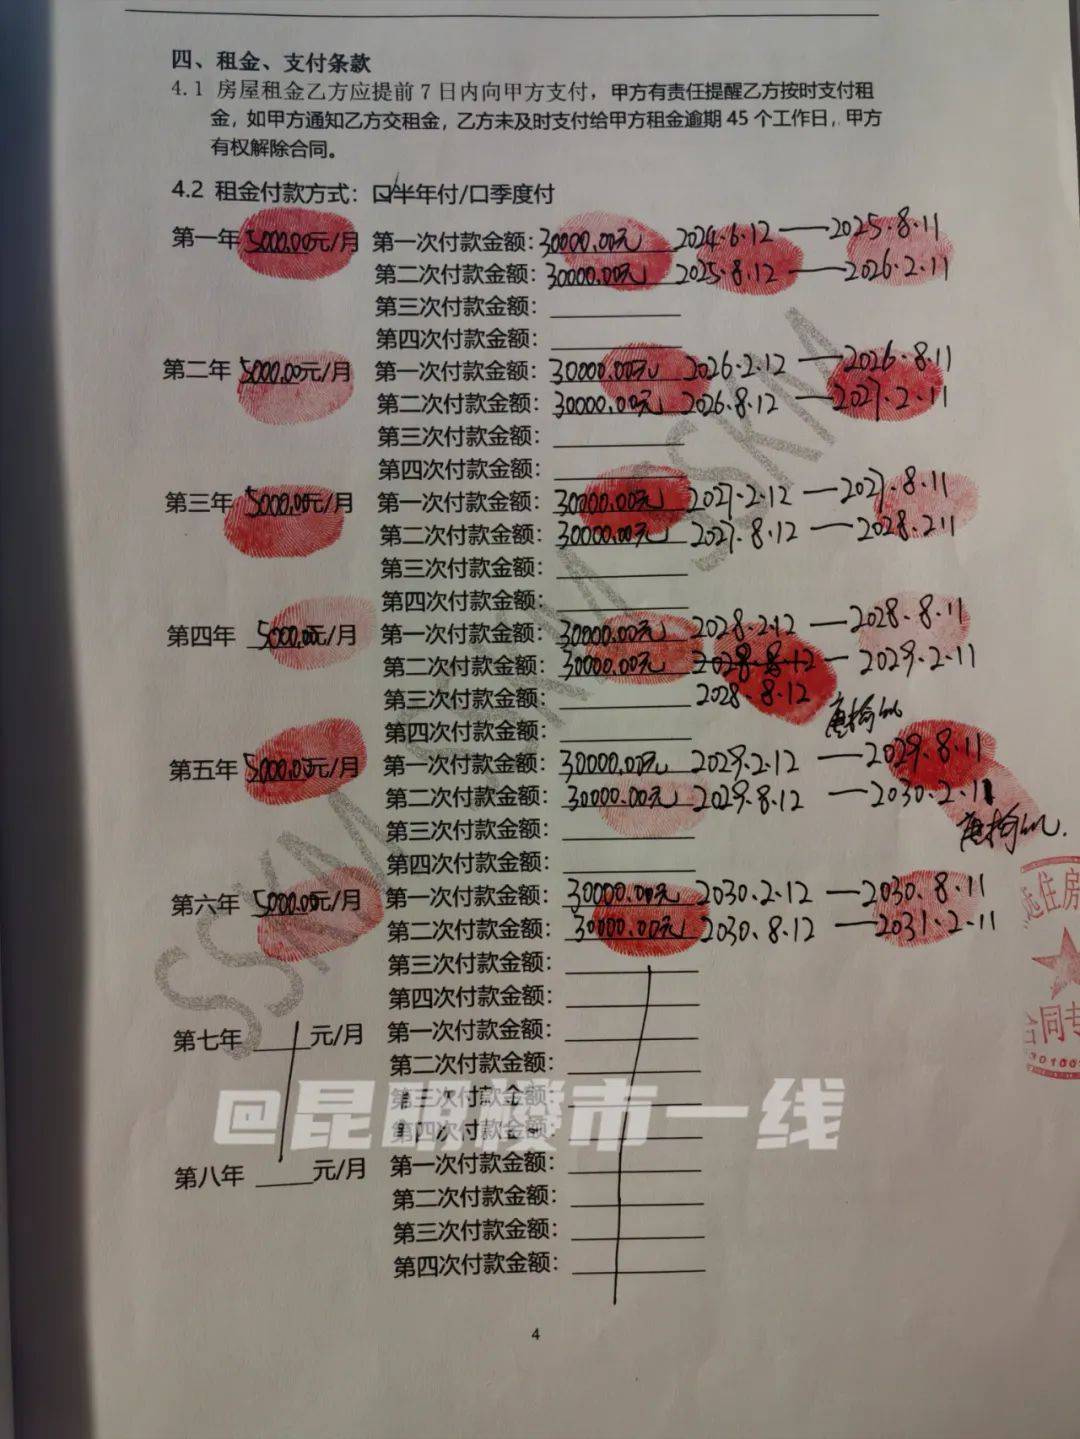 四、租金、支付条款
4.1 房屋租金乙方应提前 7 日内向甲方支付，甲方有责任提醒乙方按时支付租
金，如甲方通知乙方交租金，乙方未及时支付给甲方租金逾期 45 个工作日，甲方
有权解除合同。
4.2 租金付款方式：☑半年付/口季度付
第一年 5000.00元/月 第一次付款金额：30000.00元 2024.6.12——2025.8.11
第二次付款金额：30000.00元 2025.8.12——2026.2.11
第三次付款金额：
第四次付款金额：
第二年 5000.00元/月 第一次付款金额：30000.00元 2026.2.12——2026.8.11
第二次付款金额：30000.00元 2026.8.12——2027.2.11
第三次付款金额：
第四次付款金额：
第三年 5000.00元/月 第一次付款金额：30000.00元 2027.2.12——2027.8.11
第二次付款金额：30000.00元 2027.8.12——2028.2.11
第三次付款金额：
第四次付款金额：
第四年 5000.00元/月 第一次付款金额：30000.00元 2028.2.12——2028.8.11
第二次付款金额：30000.00元 2028.8.12—2029.2.11
第三次付款金额： 2028.8.12
第四次付款金额：
第五年 5000.00元/月 第一次付款金额：30000.00元 2029.2.12——2029.8.11
第二次付款金额：30000.00元 2029.8.12——2030.2.11
第三次付款金额：
第四次付款金额：
第六年 5000.00元/月 第一次付款金额：30000.00元 2030.2.12——2030.8.11
第二次付款金额：30000.00元 2030.8.12——2031.2.11
第三次付款金额：
第四次付款金额：
第七年 元/月 第一次付款金额：
第二次付款金额：
第三次付款金额：
第四次付款金额：
第八年 元/月 第一次付款金额：
第二次付款金额：
第三次付款金额：
第四次付款金额：
4
SSKM SSKM SSKM
@昆明楼市一线
住房
合同专